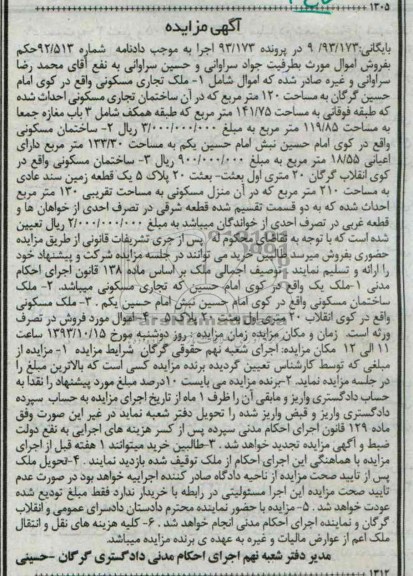 ۱۳۰۵
آگهی مزایده
بایگانی:۹۳/۱۷۳/ ۹ در پرونده ۹۳/۱۷۳ اجرا به موجب دادنامه شماره ۹۲/۵۱۳حکم
بفروش اموال مورث بطرفیت جواد سراوانی و حسین سراوانی به نفع آقای محمد رضا
سراوانی و غیره صادر شده که اموال شامل ۱- ملک تجاری مسکونی واقع در کوی امام
حسین گرگان به مساحت ۱۲۰ متر مربع که در آن ساختمان تجاری مسکونی احداث شده
که طبقه فوقانی به مساحت ۱۴۱/۷۵ متر مربع که طبقه همکف شامل ۳ باب مغازه جمعا
به مساحت ۱۱۹/۸۵ متر مربع به مبلغ ۳/۰۰۰/۰۰۰/۰۰۰ ریال ۲- ساختمان مسکونی
واقع در کوی امام حسین نبش امام حسین یکم به مساحت ۱۳۳/۳۰ متر مربع دارای
اعیانی ۱۸/۵۵ متر مربع به مبلغ ۹۰۰/۰۰۰/۰۰۰ ریال ۳- ساختمان مسکونی واقع در
کوی انقلاب گرگان ۲۰ متری اول بعثت- بعثت ۲۰ پلاک ۵ یک قطعه زمین سند عادی
به مساحت ۲۱۰ متر مربع که در آن منزل مسکونی به مساحت تقریبی ۱۳۰ متر مربع
احداث شده که به دو قسمت تقسیم شده قطعه شرقی در تصرف احدی از خواهان ها و
قطعه غربی در تصرف احدی از خواندگان میباشد به مبلغ ۲/۰۰۰/۰۰۰/۰۰۰ ریال تعیین
شده است که با توجه به تقاضای محکوم له پس از جری تشریفات قانونی از طریق مزایده
حضوری بفروش میرسد طالبین خرید می توانند در جلسه مزایده شرکت و پیشنهاد خود
را ارائه و تسلیم نمایند . توصیف اجمالی ملک بر اساس ماده ۱۳۸ قانون اجرای احکام
مدنی ۱-ملک یک واقع در کوی امام حسین که تجاری مسکونی میباشد. ۲- ملک
ساختمان مسکونی واقع در کوی امام حسین نبش امام حسین یکم . ۳- ملک مسکونی
واقع در کوی انقلاب ۲۰ متری اول بعثت ۲۰ پلاک ۵ . ۴- اموال مورد فروش در تصرف
ورثه است. زمان و مکان مزایده زمان مزایده : روز دوشنبه مورخ ۱۳۹۳/۱۰/۱۵ ساعت
۱۱ الی ۱۲ مکان مزایده: اجرای شعبه نهم حقوقی گرگان شرایط مزایده ۱- مزایده از
مبلغی که توسط کارشناس تعیین گردیده برنده مزایده کسی است که بالاترین مبلغ را
در جلسه مزایده نماید. ۲-برنده مزایده می بایست ۱۰درصد مبلغ مورد پیشنهاد را نقدا به
حساب دادگستری واریز و مابقی آن را ظرف ۱ ماه از تاریخ اجرای مزایده به حساب سپرده
دادگستری واریز و قبض واریز شده را تحویل دفتر شعبه نماید در غیر این صورت وفق
ماده ۱۲۹ قانون اجرای احکام مدنی سپرده پس از کسر هزینه های اجرایی به نفع دولت
ضبط و آگهی مزایده تجدید خواهد شد . ۳-طالبین خرید میتوانند ۱ هفته قبل از اجرای
مزایده با هماهنگی این اجرای احکام از ملک توقیف شده بازدید نمایند . ۴-تحویل ملک
پس از تایید صحت مزایده از ناحیه دادگاه صادر کننده اجراییه خواهد بود در صورت عدم
تایید صحت مزایده این اجرا مسئولیتی در رابطه با خریدار ندارد فقط مبلغ تودیع شده
عودت خواهد شد . ۵- مزایده با حضور نماینده محترم دادستان دادسرای عمومی و انقلاب
گرگان و نماینده اجرای احکام مدنی انجام خواهد شد . ۶- کلیه هزینه های نقل و انتقال
ملک اعم از عوارض مالیات و غیره به عهده ی برنده مزایده میباشد.
مدیر دفتر شعبه نهم اجرای احکام مدنی دادگستری گرگان -حسینی
۱۳۱۲